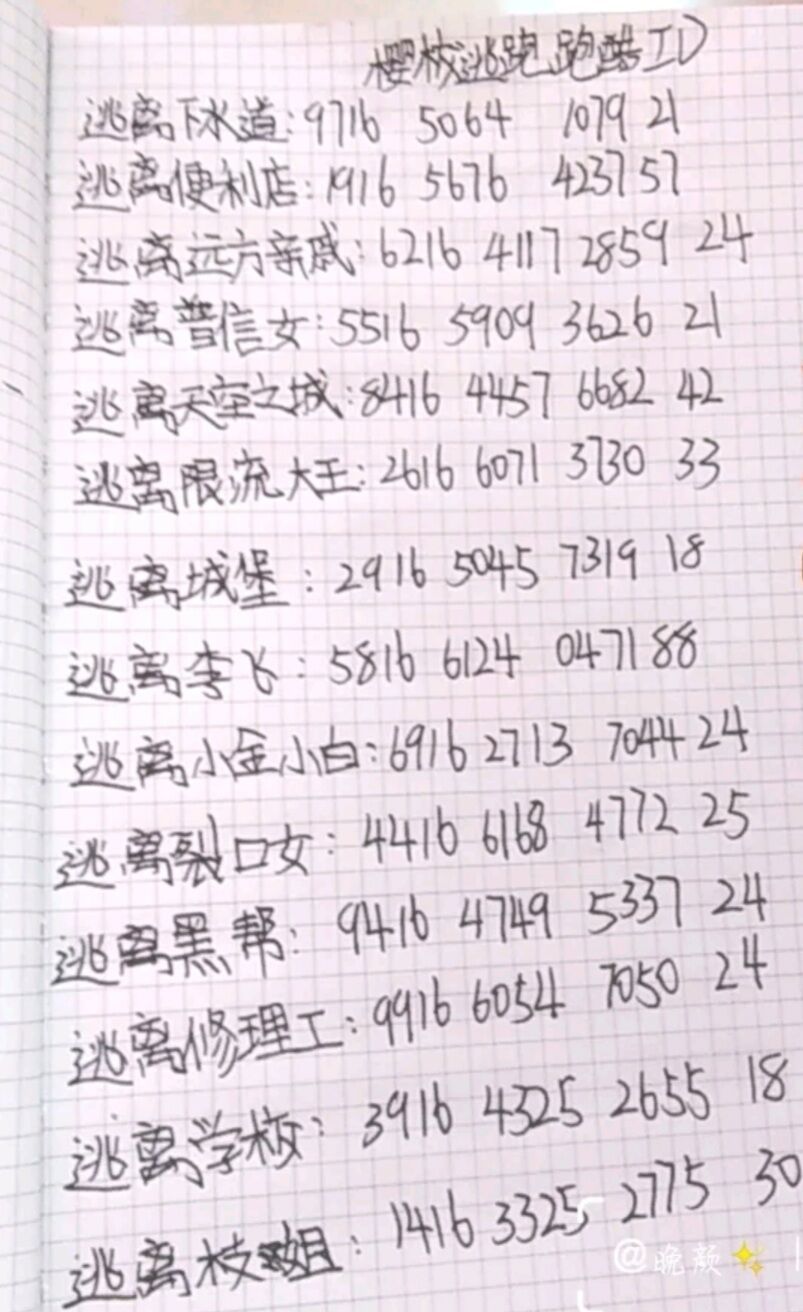 樱校逃跑跑酷ID
逃离下水道:9716 5064 1079 21
逃离便利店:1916 5676 4237 57
逃离远方亲戚:6216 4117 2859 24
逃离普信女:5516 5909 3626 21
逃离天空之城:8416 4457 6682 42
逃离限流大王:2616 6071 3730 33
逃离城堡:2916 5045 7319 18
逃离李飞:5816 6124 0471 88
逃离小金小白:6916 2713 7044 24
逃离裂口女:4416 6168 4772 25
逃离黑帮:9416 4749 5337 24
逃离修理工:9916 6054 7050 24
逃离学校:3916 4325 2655 18
逃离枝姐:1416 3325 2775 30
@晚颜✨